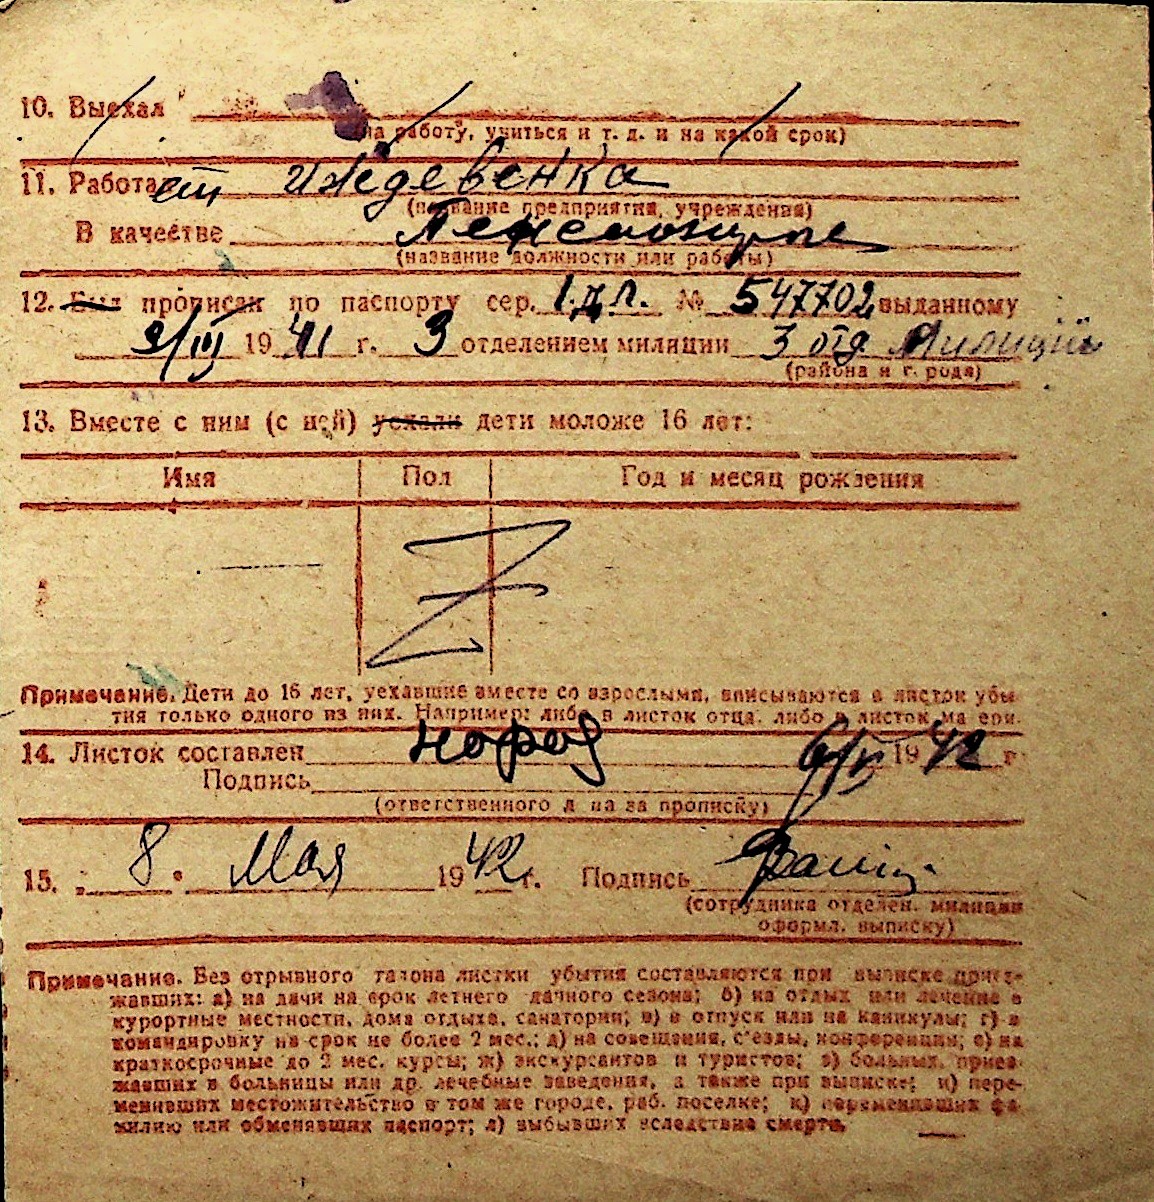 10. Выехал
(на работу, учиться и т. д. и на какой срок)
11. Работает иждевенка
(название предприятия, учреждения)
В качестве
(название должности или работы)
12. Был прописан по паспорту сер. № 547702 выданному
9/III 1941 г. 3 отделением милиции 3 отд Милиции
(района и города)
13. Вместе с ним (с ней) уехали дети моложе 16 лет:
Имя Пол Год и месяц рождения
Z
Примечание. Дети до 16 лет, уехавшие вместе со взрослыми, вписываются в листок убы-
тия только одного из них. Например: либо в листок отца, либо в листок матери.
14. Листок составлен 1942 г
Подпись
(ответственного лица за прописку)
15. „ 8 " Мая 1942 г. Подпись
(сотрудника отделен. милиции
оформл. выписку)
Примечание. Без отрывного талона листки убытия составляются при выписке приез-
жавших: а) на дачи на срок летнего дачного сезона; б) на отдых или лечение в
курортные местности, дома отдыха, санатории; в) в отпуск или на каникулы; г) в
командировку на срок не более 2 мес.; д) на совещания, съезды, конференции; е) на
краткосрочные до 2 мес. курсы; ж) экскурсантов и туристов; з) больных, приез-
жавших в больницы или др. лечебные заведения, а также при выписке; и) пере-
менивших местожительство в том же городе, раб. поселке; к) переменивших фа-
милию или обменявших паспорт; л) выбывших вследствие смерти.